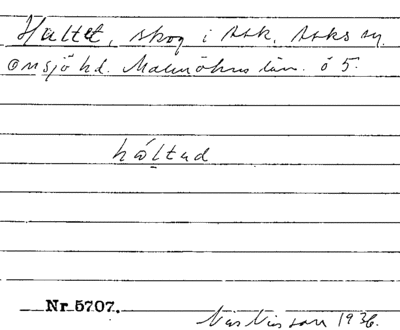 Hultet, skog i Ask, Asks sn,
Onsjö hd. Malmöhus län. ö 5.
hòltad
Nr 5707.
Nils Nilsson 1936.